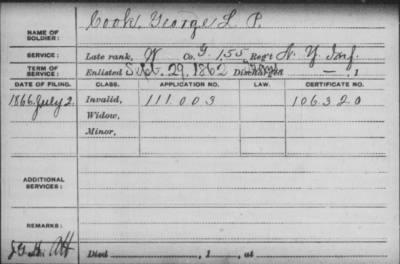 NAME OF SOLDIER: Cook, George L. P.
SERVICE: Late rank, Co. G. 155, Reg't N. Y. Inf.
TERM OF SERVICE: Enlisted Sept. 29, 1862 Discharged —, 1
DATE OF FILING. CLASS. APPLICATION NO. LAW. CERTIFICATE NO.
1866 July 2. Invalid, 111.003 106320
Widow,
Minor,
ADDITIONAL SERVICES:
REMARKS:
Died , 1 , at